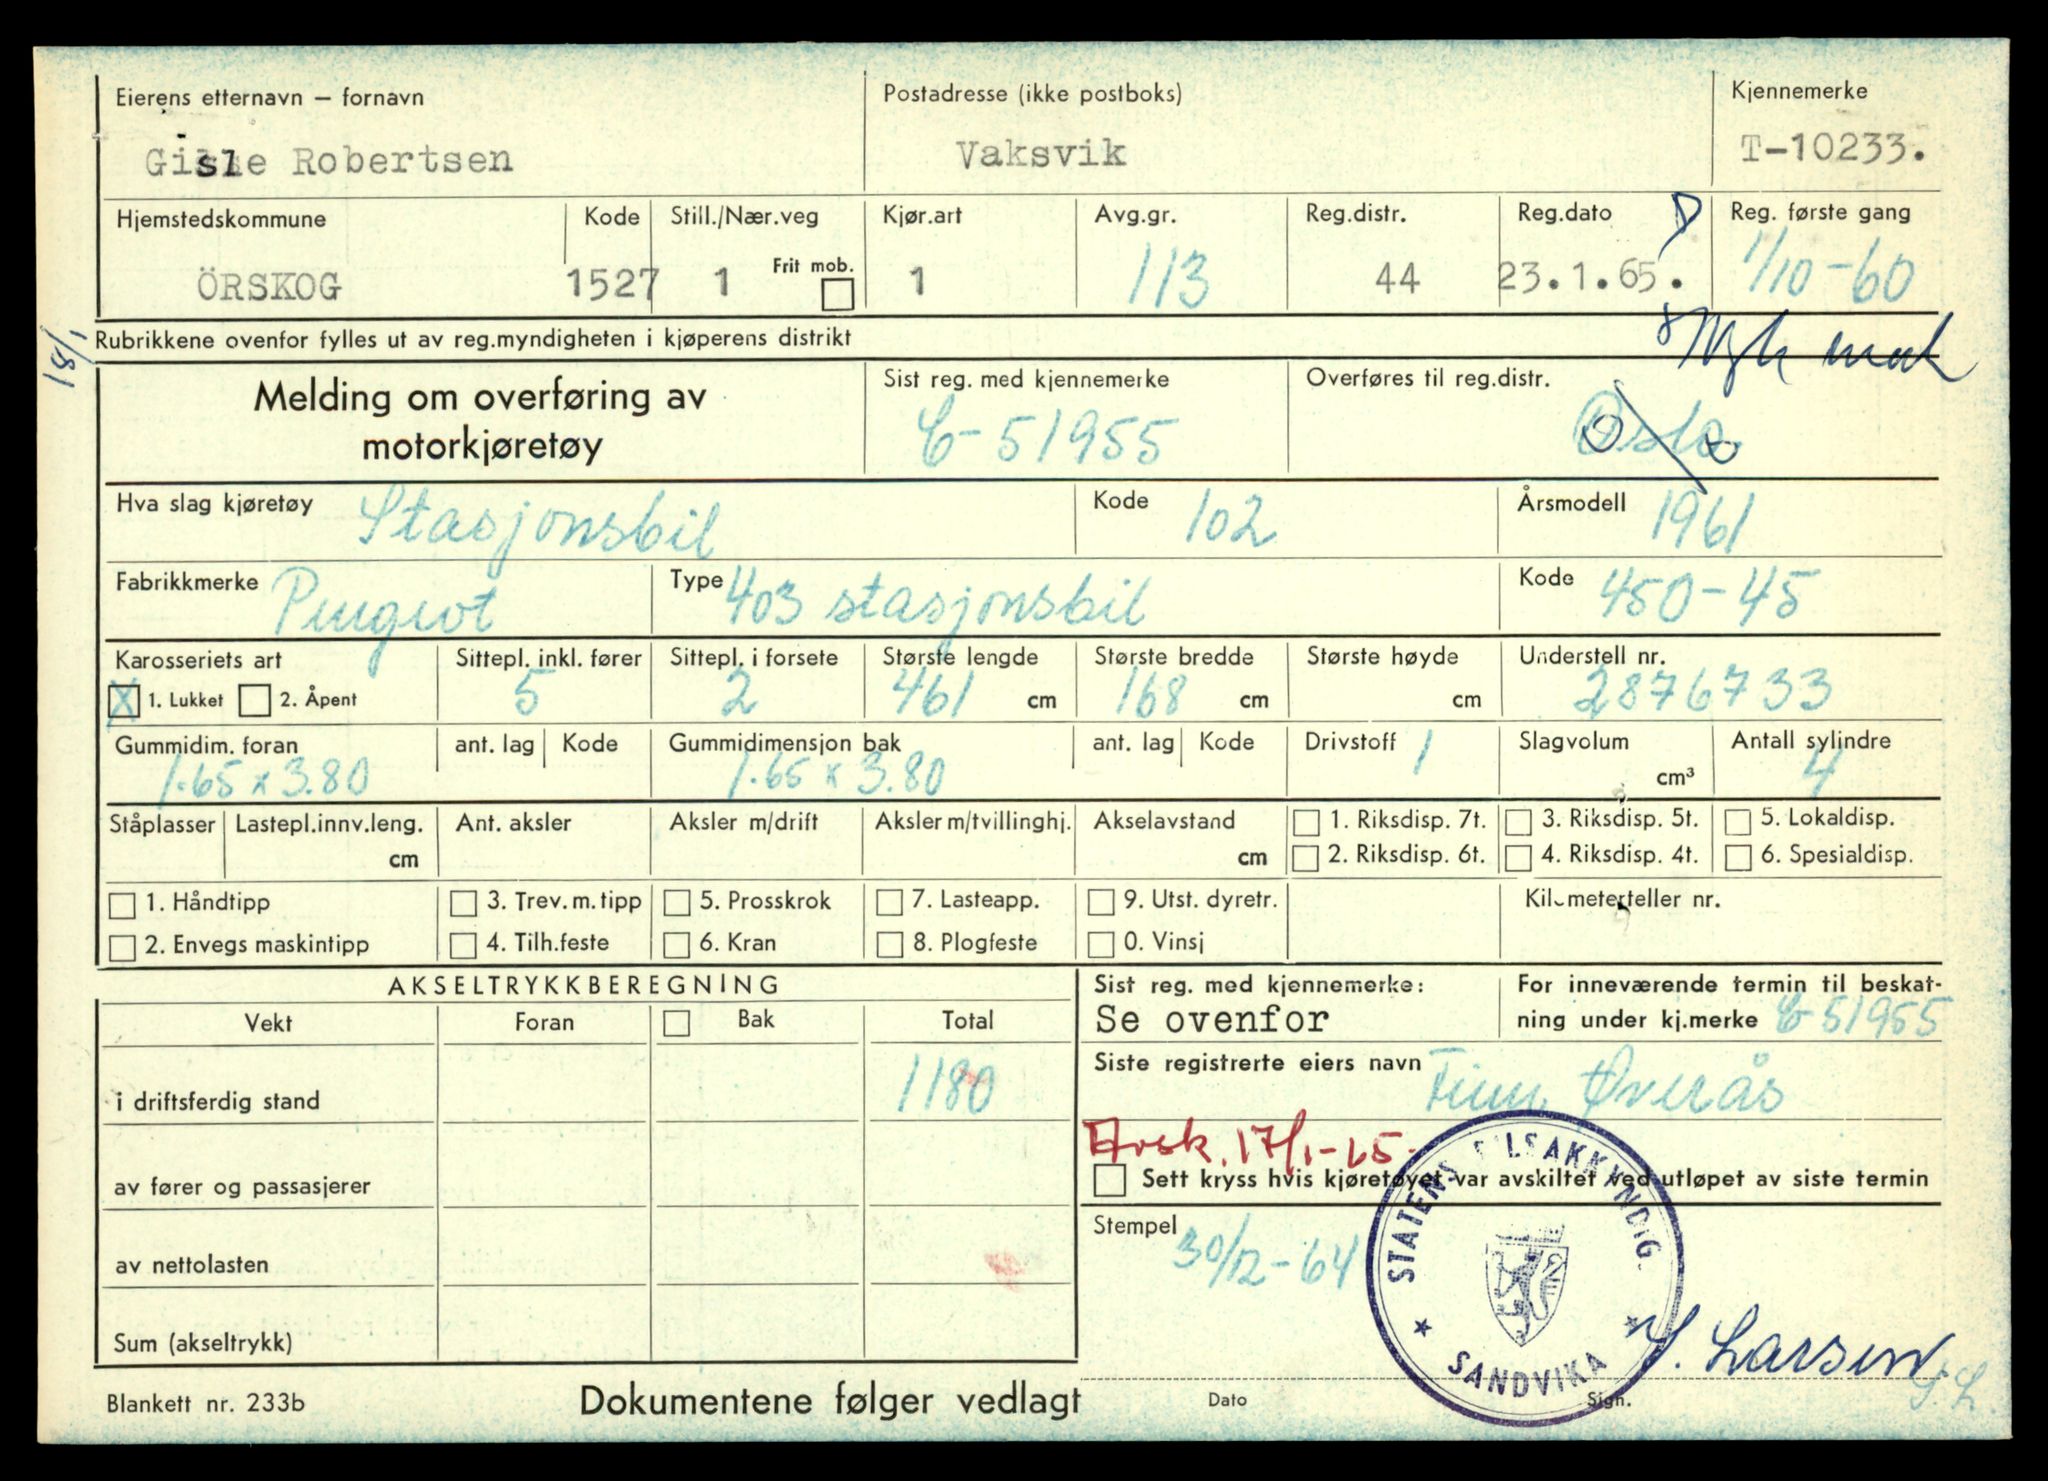 Eierens etternavn – fornavn
Gisle Robertsen
Postadresse (ikke postboks)
Vaksvik
Kjennemerke
T-10233.
Hjemstedskommune
ÖRSKOG
Kode
1527
Still./Nær.veg
1
Frit mob.
Kjør.art
1
Avg.gr.
113
Reg.distr.
44
Reg.dato
23.1.65.
Reg. første gang
1/10-60
Rubrikkene ovenfor fylles ut av reg.myndigheten i kjøperens distrikt
Melding om overføring av
motorkjøretøy
Sist reg. med kjennemerke
C-51955
Overføres til reg.distr.
Oslo
Hva slag kjøretøy
Stasjonsbil
Kode
102
Årsmodell
1961
Fabrikkmerke
Peugeot
Type
403 stasjonsbil
Kode
450-45
Karosseriets art
X 1. Lukket 2. Åpent
Sittepl. inkl. fører
5
Sittepl. i forsete
2
Største lengde
461 cm
Største bredde
168 cm
Største høyde
cm
Understell nr.
2876733
Gummidim. foran
1.65 x 3.80
ant. lag Kode
Gummidimensjon bak
1.65 x 3.80
ant. lag Kode
Drivstoff
1
Slagvolum
cm³
Antall sylindre
4
Ståplasser
Lastepl.innv.leng.
cm
Ant. aksler
Aksler m/drift
Aksler m/tvillinghj.
Akselavstand
cm
1. Riksdisp. 7t.
2. Riksdisp. 6t.
3. Riksdisp. 5t.
4. Riksdisp. 4t.
5. Lokaldisp.
6. Spesialdisp.
1. Håndtipp
2. Envegs maskintipp
3. Trev. m. tipp
4. Tilh.feste
5. Prosskrok
6. Kran
7. Lasteapp.
8. Plogfeste
9. Utst. dyretr.
0. Vinsj
Kilometerteller nr.
AKSELTRYKKBEREGNING
Vekt Foran Bak Total
i driftsferdig stand 1180
av fører og passasjerer
av nettolasten
Sum (akseltrykk)
Sist reg. med kjennemerke:
Se ovenfor
For inneværende termin til beskat-
ning under kj.merke C-51955
Siste registrerte eiers navn Finn Øverås
Avsk. 17/1-65.
Sett kryss hvis kjøretøyet var avskiltet ved utløpet av siste termin
Stempel
30/12-64
STATENS BILSAKKYNDIG.
SANDVIKA
S. Larsen
S.L.
Blankett nr. 233b
Dokumentene følger vedlagt
Dato
Sign.